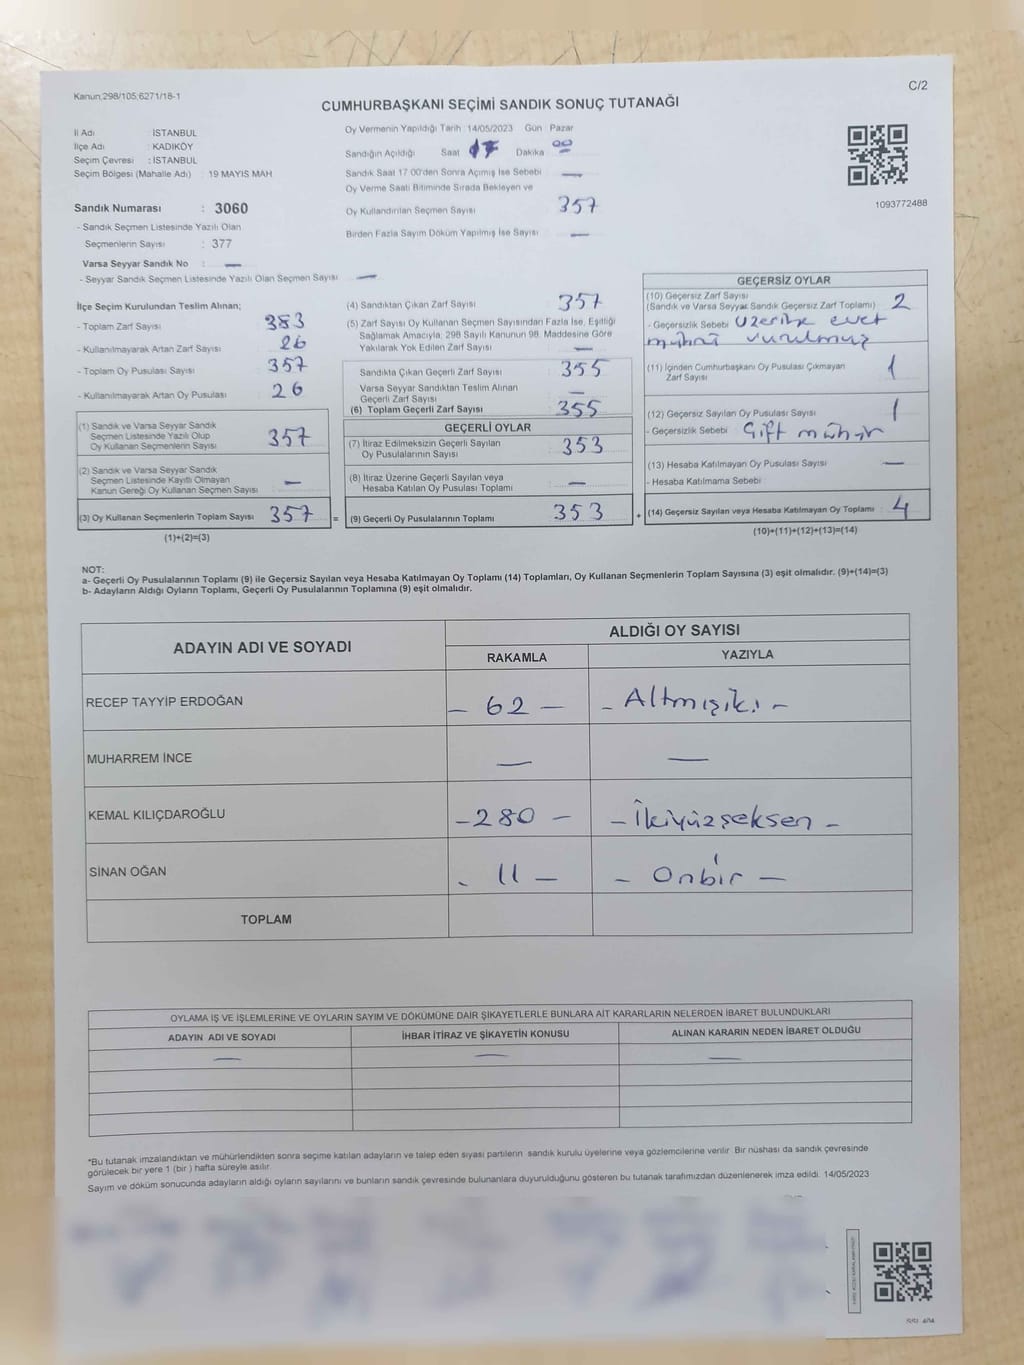 Kanun;298/105;6271/18-1
C/2
CUMHURBAŞKANI SEÇİMİ SANDIK SONUÇ TUTANAĞI
İl Adı : İSTANBUL
İlçe Adı : KADIKÖY
Seçim Çevresi : İSTANBUL
Seçim Bölgesi (Mahalle Adı) : 19 MAYIS MAH
Sandık Numarası : 3060
- Sandık Seçmen Listesinde Yazılı Olan
Seçmenlerin Sayısı : 377
Varsa Seyyar Sandık No : —
- Seyyar Sandık Seçmen Listesinde Yazılı Olan Seçmen Sayısı —
Oy Vermenin Yapıldığı Tarih :14/05/2023 Gün : Pazar
Sandığın Açıldığı Saat 17 Dakika 00
Sandık Saat 17:00'den Sonra Açımış İse Sebebi —
Oy Verme Saati Bitiminde Sırada Bekleyen ve
Oy Kullandırılan Seçmen Sayısı 357
Birden Fazla Sayım Döküm Yapılmış İse Sayısı —
1093772488
İlçe Seçim Kurulundan Teslim Alınan;
- Toplam Zarf Sayısı 383
- Kullanılmayarak Artan Zarf Sayısı 26
- Toplam Oy Pusulası Sayısı 357
- Kullanılmayarak Artan Oy Pusulası 26
(1) Sandık ve Varsa Seyyar Sandık
Seçmen Listesinde Yazılı Olup
Oy Kullanan Seçmenlerin Sayısı 357
(2) Sandık ve Varsa Seyyar Sandık
Seçmen Listesinde Kayıtlı Olmayan
Kanun Gereği Oy Kullanan Seçmen Sayısı —
(3) Oy Kullanan Seçmenlerin Toplam Sayısı 357
(1)+(2)=(3)
=
(4) Sandıktan Çıkan Zarf Sayısı 357
(5) Zarf Sayısı Oy Kullanan Seçmen Sayısından Fazla İse, Eşitliği
Sağlamak Amacıyla; 298 Sayılı Kanunun 98. Maddesine Göre
Yakılarak Yok Edilen Zarf Sayısı —
Sandıkta Çıkan Geçerli Zarf Sayısı 355
Varsa Seyyar Sandıktan Teslim Alınan
Geçerli Zarf Sayısı —
(6) Toplam Geçerli Zarf Sayısı 355
GEÇERLİ OYLAR
(7) İtiraz Edilmeksizin Geçerli Sayılan
Oy Pusulalarının Sayısı 353
(8) İtiraz Üzerine Geçerli Sayılan veya
Hesaba Katılan Oy Pusulası Toplamı —
(9) Geçerli Oy Pusulalarının Toplamı 353
+
GEÇERSİZ OYLAR
(10) Geçersiz Zarf Sayısı
(Sandık ve Varsa Seyyar Sandık Geçersiz Zarf Toplamı) 2
- Geçersizlik Sebebi Üzerine evet
mührü vurulmuş
(11) İçinden Cumhurbaşkanı Oy Pusulası Çıkmayan
Zarf Sayısı 1
(12) Geçersiz Sayılan Oy Pusulası Sayısı 1
- Geçersizlik Sebebi Çift mühür
(13) Hesaba Katılmayan Oy Pusulası Sayısı —
- Hesaba Katılmama Sebebi
(14) Geçersiz Sayılan veya Hesaba Katılmayan Oy Toplamı : 4
(10)+(11)+(12)+(13)=(14)
NOT:
a- Geçerli Oy Pusulalarının Toplamı (9) ile Geçersiz Sayılan veya Hesaba Katılmayan Oy Toplamı (14) Toplamları, Oy Kullanan Seçmenlerin Toplam Sayısına (3) eşit olmalıdır. (9)+(14)=(3)
b- Adayların Aldığı Oyların Toplamı, Geçerli Oy Pusulalarının Toplamına (9) eşit olmalıdır.
ADAYIN ADI VE SOYADI
ALDIĞI OY SAYISI
RAKAMLA YAZIYLA
RECEP TAYYİP ERDOĞAN — 62 — — Altmışiki —
MUHARREM İNCE — —
KEMAL KILIÇDAROĞLU —280 — — İkiyüzseksen —
SİNAN OĞAN - 11 — — Onbir —
TOPLAM
OYLAMA İŞ VE İŞLEMLERİNE VE OYLARIN SAYIM VE DÖKÜMÜNE DAİR ŞİKAYETLERLE BUNLARA AİT KARARLARIN NELERDEN İBARET BULUNDUKLARI
ADAYIN ADI VE SOYADI İHBAR İTİRAZ VE ŞİKAYETİN KONUSU ALINAN KARARIN NEDEN İBARET OLDUĞU
— — —
*Bu tutanak imzalandıktan ve mühürlendikten sonra seçime katılan adayların ve talep eden siyasi partilerin sandık kurulu üyelerine veya gözlemcilerine verilir. Bir nüshası da sandık çevresinde
görülecek bir yere 1 (bir ) hafta süreyle asılır.
Sayım ve döküm sonucunda adayların aldığı oyların sayılarını ve bunların sandık çevresinde bulunanlara duyurulduğunu gösteren bu tutanak tarafımızdan düzenlenerek imza edildi. 14/05/2023